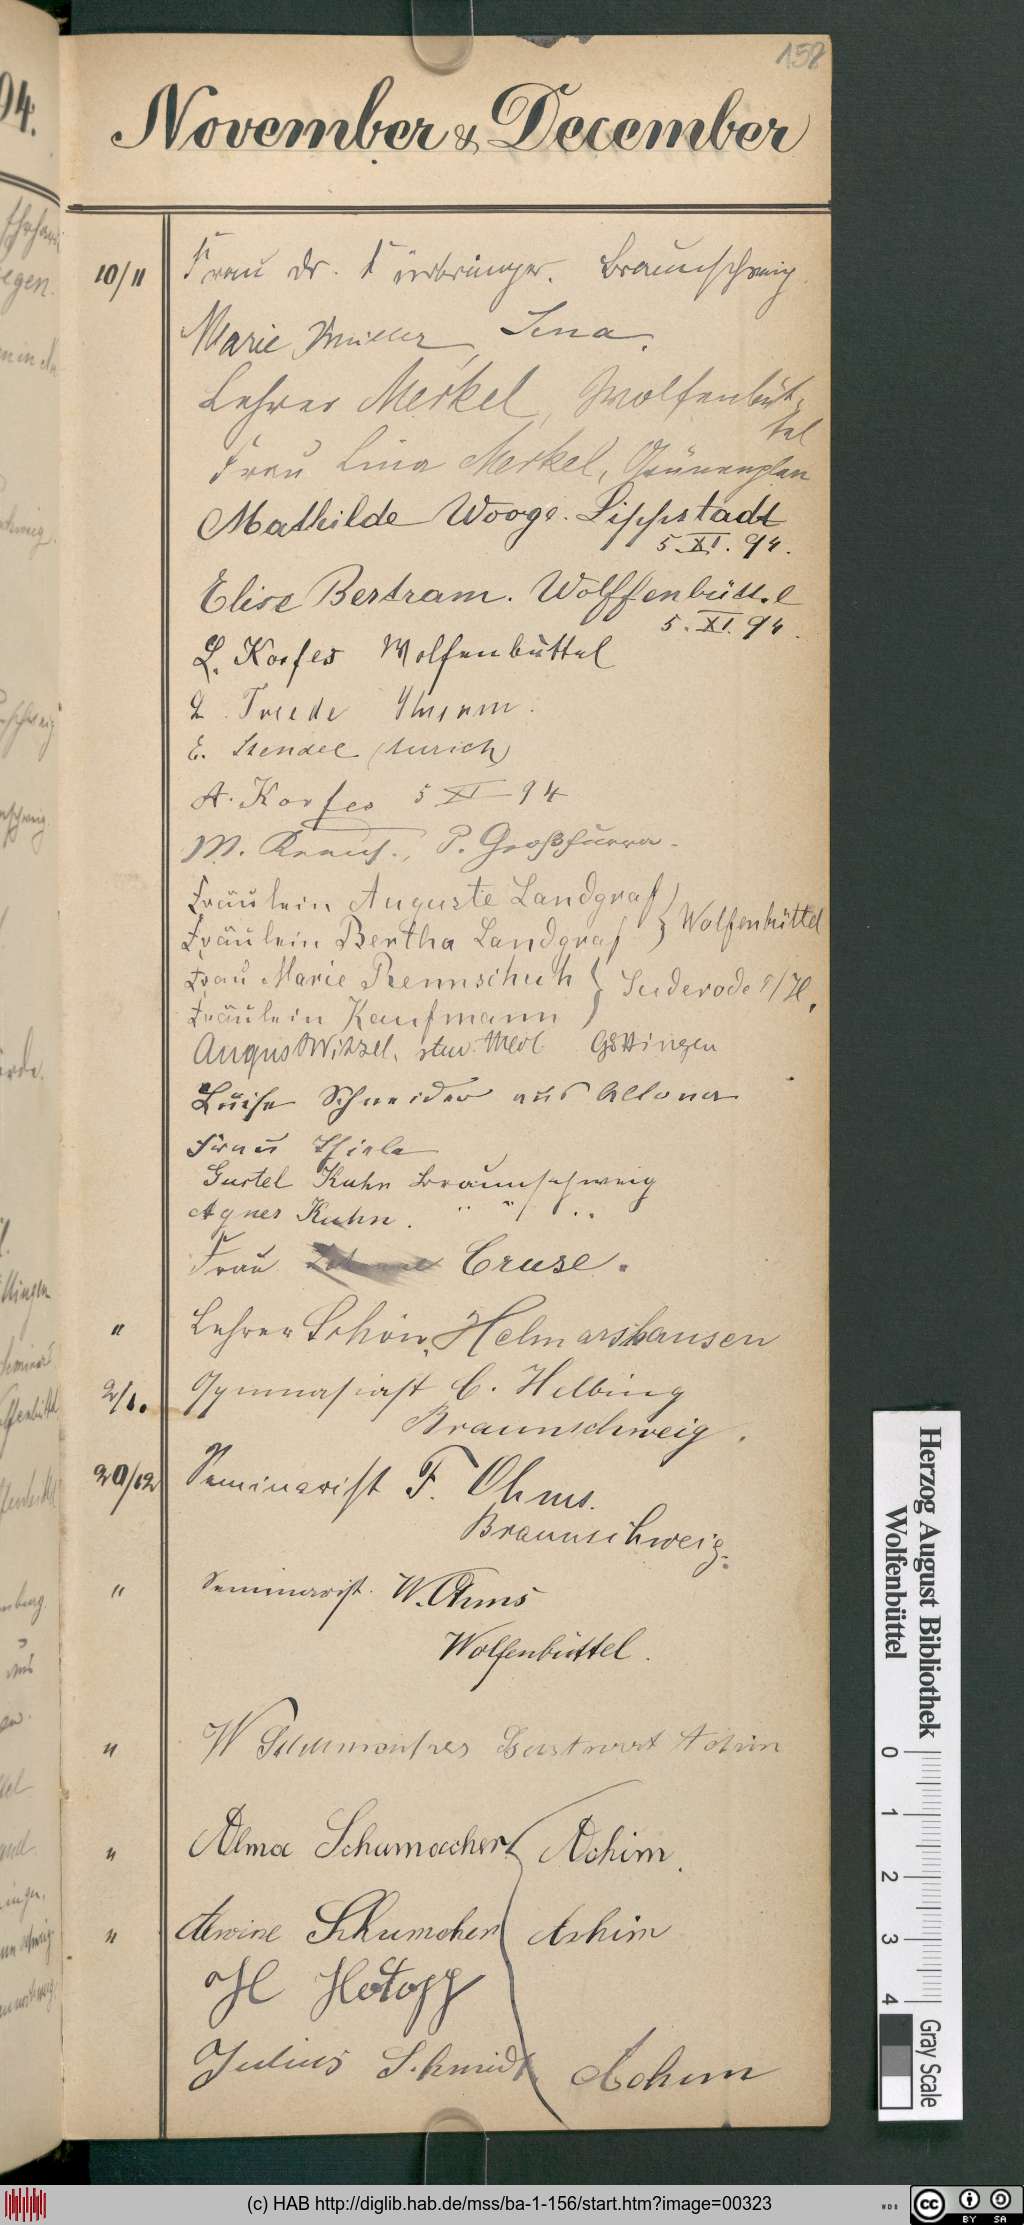 94.
158
November & December
10/11 Frau Dr. Fürbringer. Braunschweig
Marie Müller, Jena.
Lehrer Merkel, Wolfenbüt-
tel
Frau Lina Merkel, Grünenplan
Mathilde Wooge. Lippstadt
5.XI.94.
Elise Bertram. Wolffenbüttel
5.XI.94.
L. Korfes Wolfenbüttel
E. Stendel (Aurich)
A. Korfes 5 XI 94
P. Großfurra.
Fräulein Auguste Landgraf } Wolfenbüttel
Fräulein Bertha Landgraf
Frau Marie Rennschuh } Suderode a/H.
Fräulein Kaufmann
August Witzel, stud. Med. Göttingen
Luise Schneider aus Altona
Frau Thiele
Gustel Kuhn Braunschweig
Agnes Kuhn. " " "
Frau Cruse.
" Lehrer Schön, Helmarshausen
Gymnasiast C. Helbing
Braunschweig.
20/12 Seminarist F. Ohms.
Braunschweig.
" Seminarist. W. Ohms
Wolfenbüttel.
" W Gastwirt Achim
" Alma Schumacher Achim.
" Schumcher Achim
H Hotopp
Julius Schmidt Achim
Herzog August Bibliothek
Wolfenbüttel
0 1 2 3 4
Gray Scale
(c) HAB http://diglib.hab.de/mss/ba-1-156/start.htm?image=00323
WDB
cc BY SA